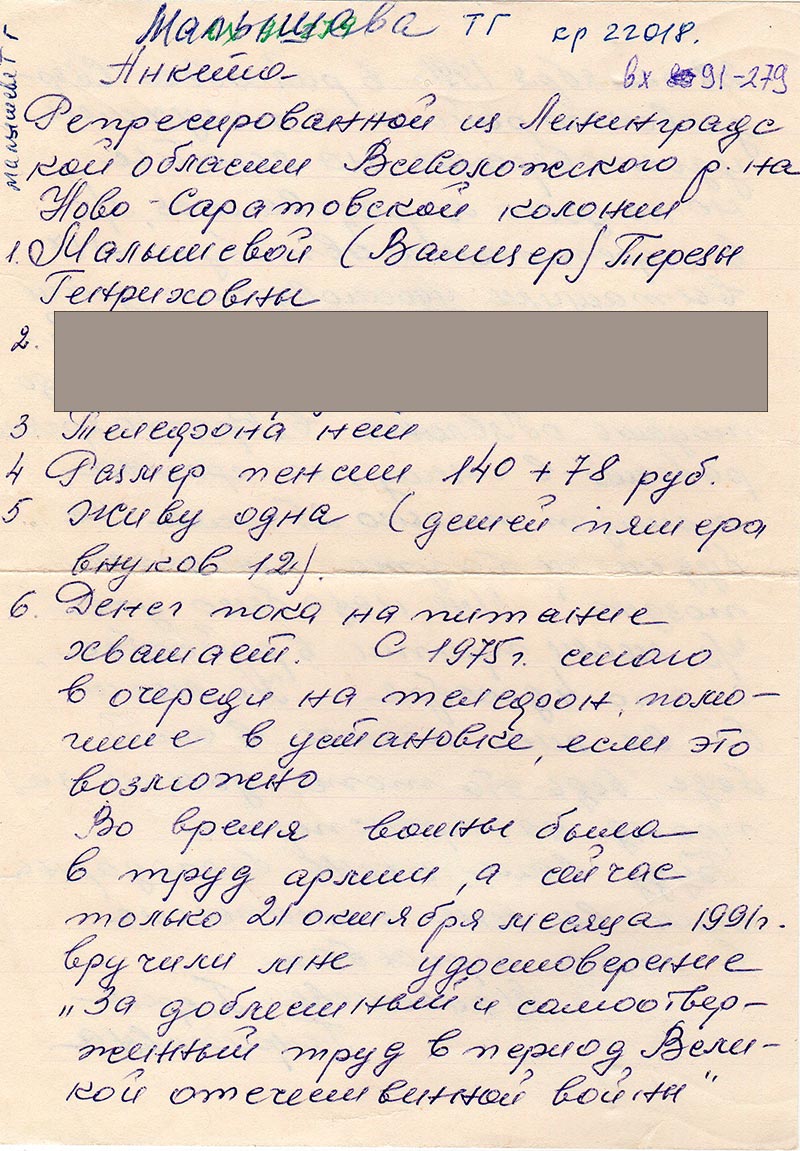 Малышева ТГ кр 22018.
Малышева Т Г
Анкета
вх 91-279
Репресированной из Ленинградс
кой области Всеволожского р. на
Ново-Саратовской колонии
1. Малышевой (Валцер) Терезы
Генриховны
2.
3 Телефона нет
4 Размер пенсии 140 + 78 руб.
5 Живу одна (детей пятера
внуков 12).
6. Денег пока на питание
хватает. С 1975г. стою
в очереди на телефон, помо-
гите в установке, если это
возможно
Во время воины была
в труд армии, а сейчас
только 21 октября месяца 1991г.
вручили мне удостоверение
„За доблестный и самоотвер-
женный труд в период Вели-
кой отечественной войны"